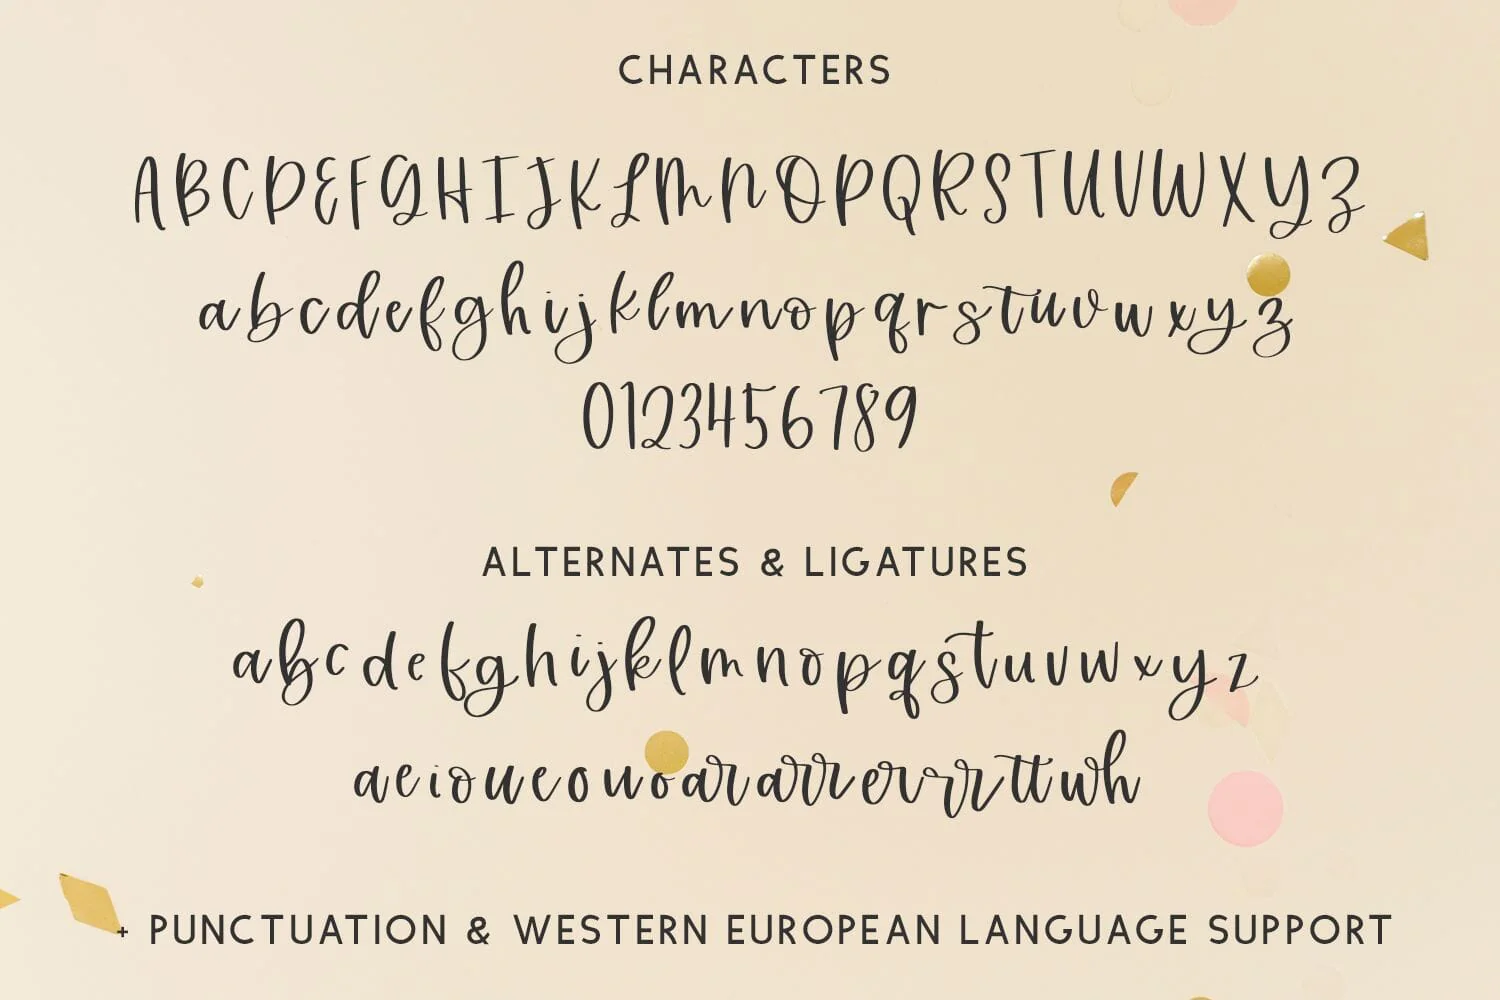 CHARACTERS
ABCDEFGHIJKLMNOPQRSTUVWXYZ
abcdefghijklmnopqrstuvwxyz
0123456789
ALTERNATES & LIGATURES
abcdefghijklmnopqrstuvwxyz
aeioueouoararrerrrrttwh
+ PUNCTUATION & WESTERN EUROPEAN LANGUAGE SUPPORT